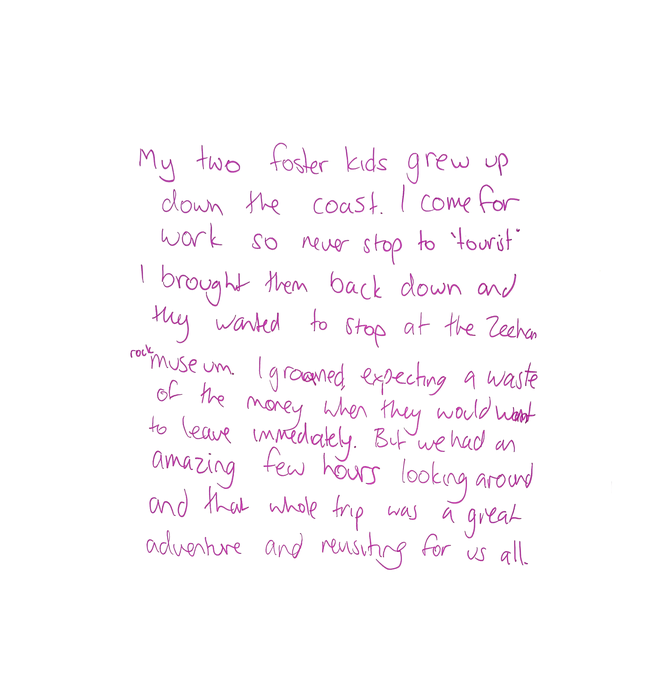 My two foster kids grew up
down the coast. I come for
work so never stop to "tourist"
I brought them back down and
they wanted to stop at the Zeehan
rock museum. I groaned, expecting a waste
of the money when they would want
to leave immediately. But we had an
amazing few hours looking around
and that whole trip was a great
adventure and revisiting for us all.